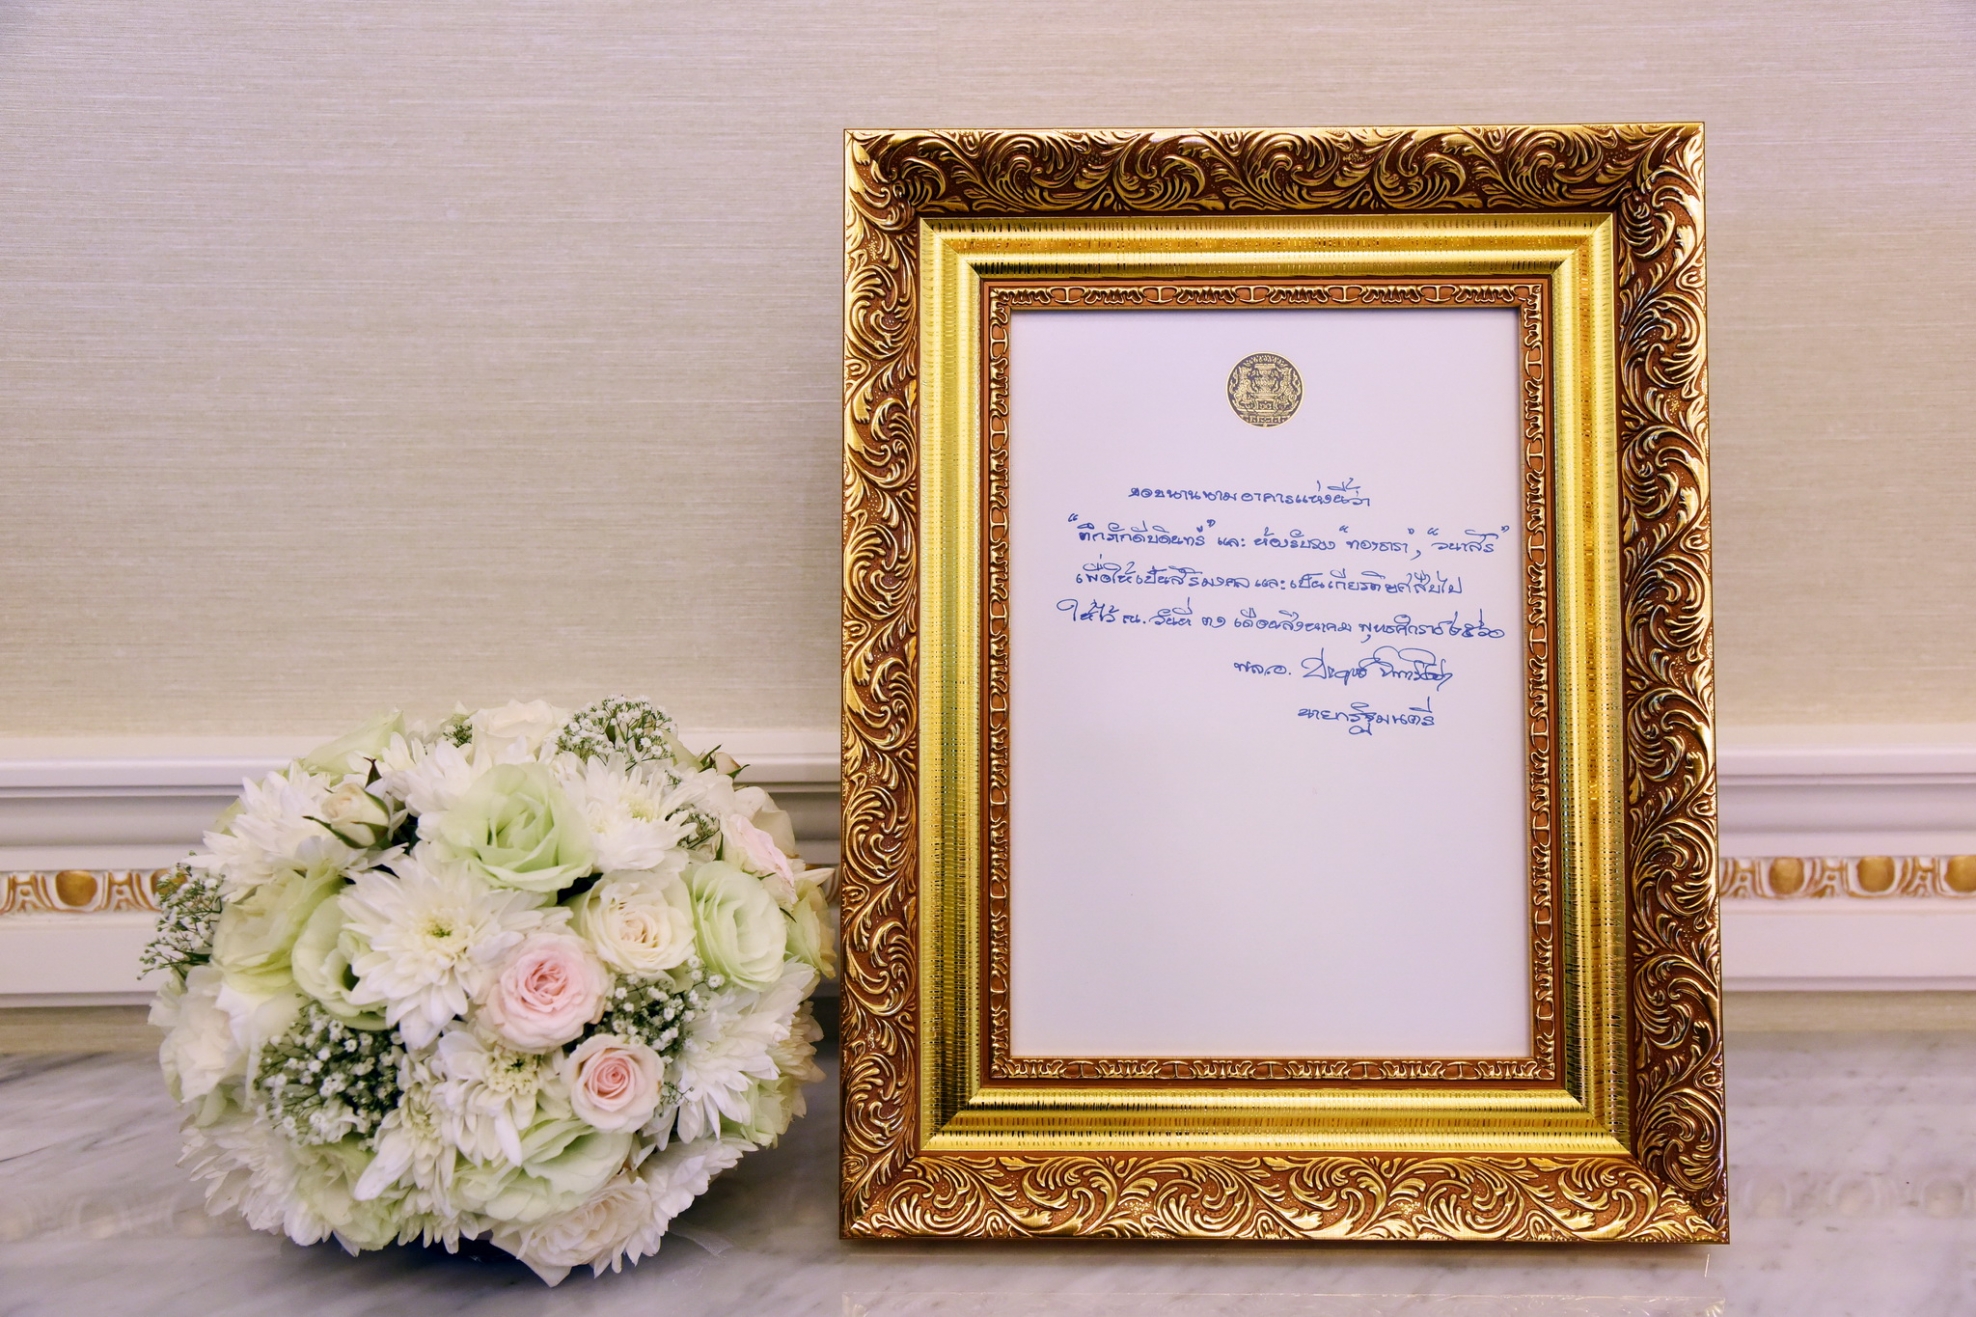 ขอขนานนามอาคารแห่งนี้ว่า
"ตึกภักดีบดินทร์" และ ห้องรับรอง "ทองธารา", "วนาสิริ"
เพื่อให้เป็นสิริมงคล และ เป็นเกียรติยศสืบไป
ให้ไว้ ณ. วันที่ ๓๑ เดือนสิงหาคม พุทธศักราช ๒๕๖๐
พล.อ. ประยุทธ์ จันทร์โอชา
นายกรัฐมนตรี